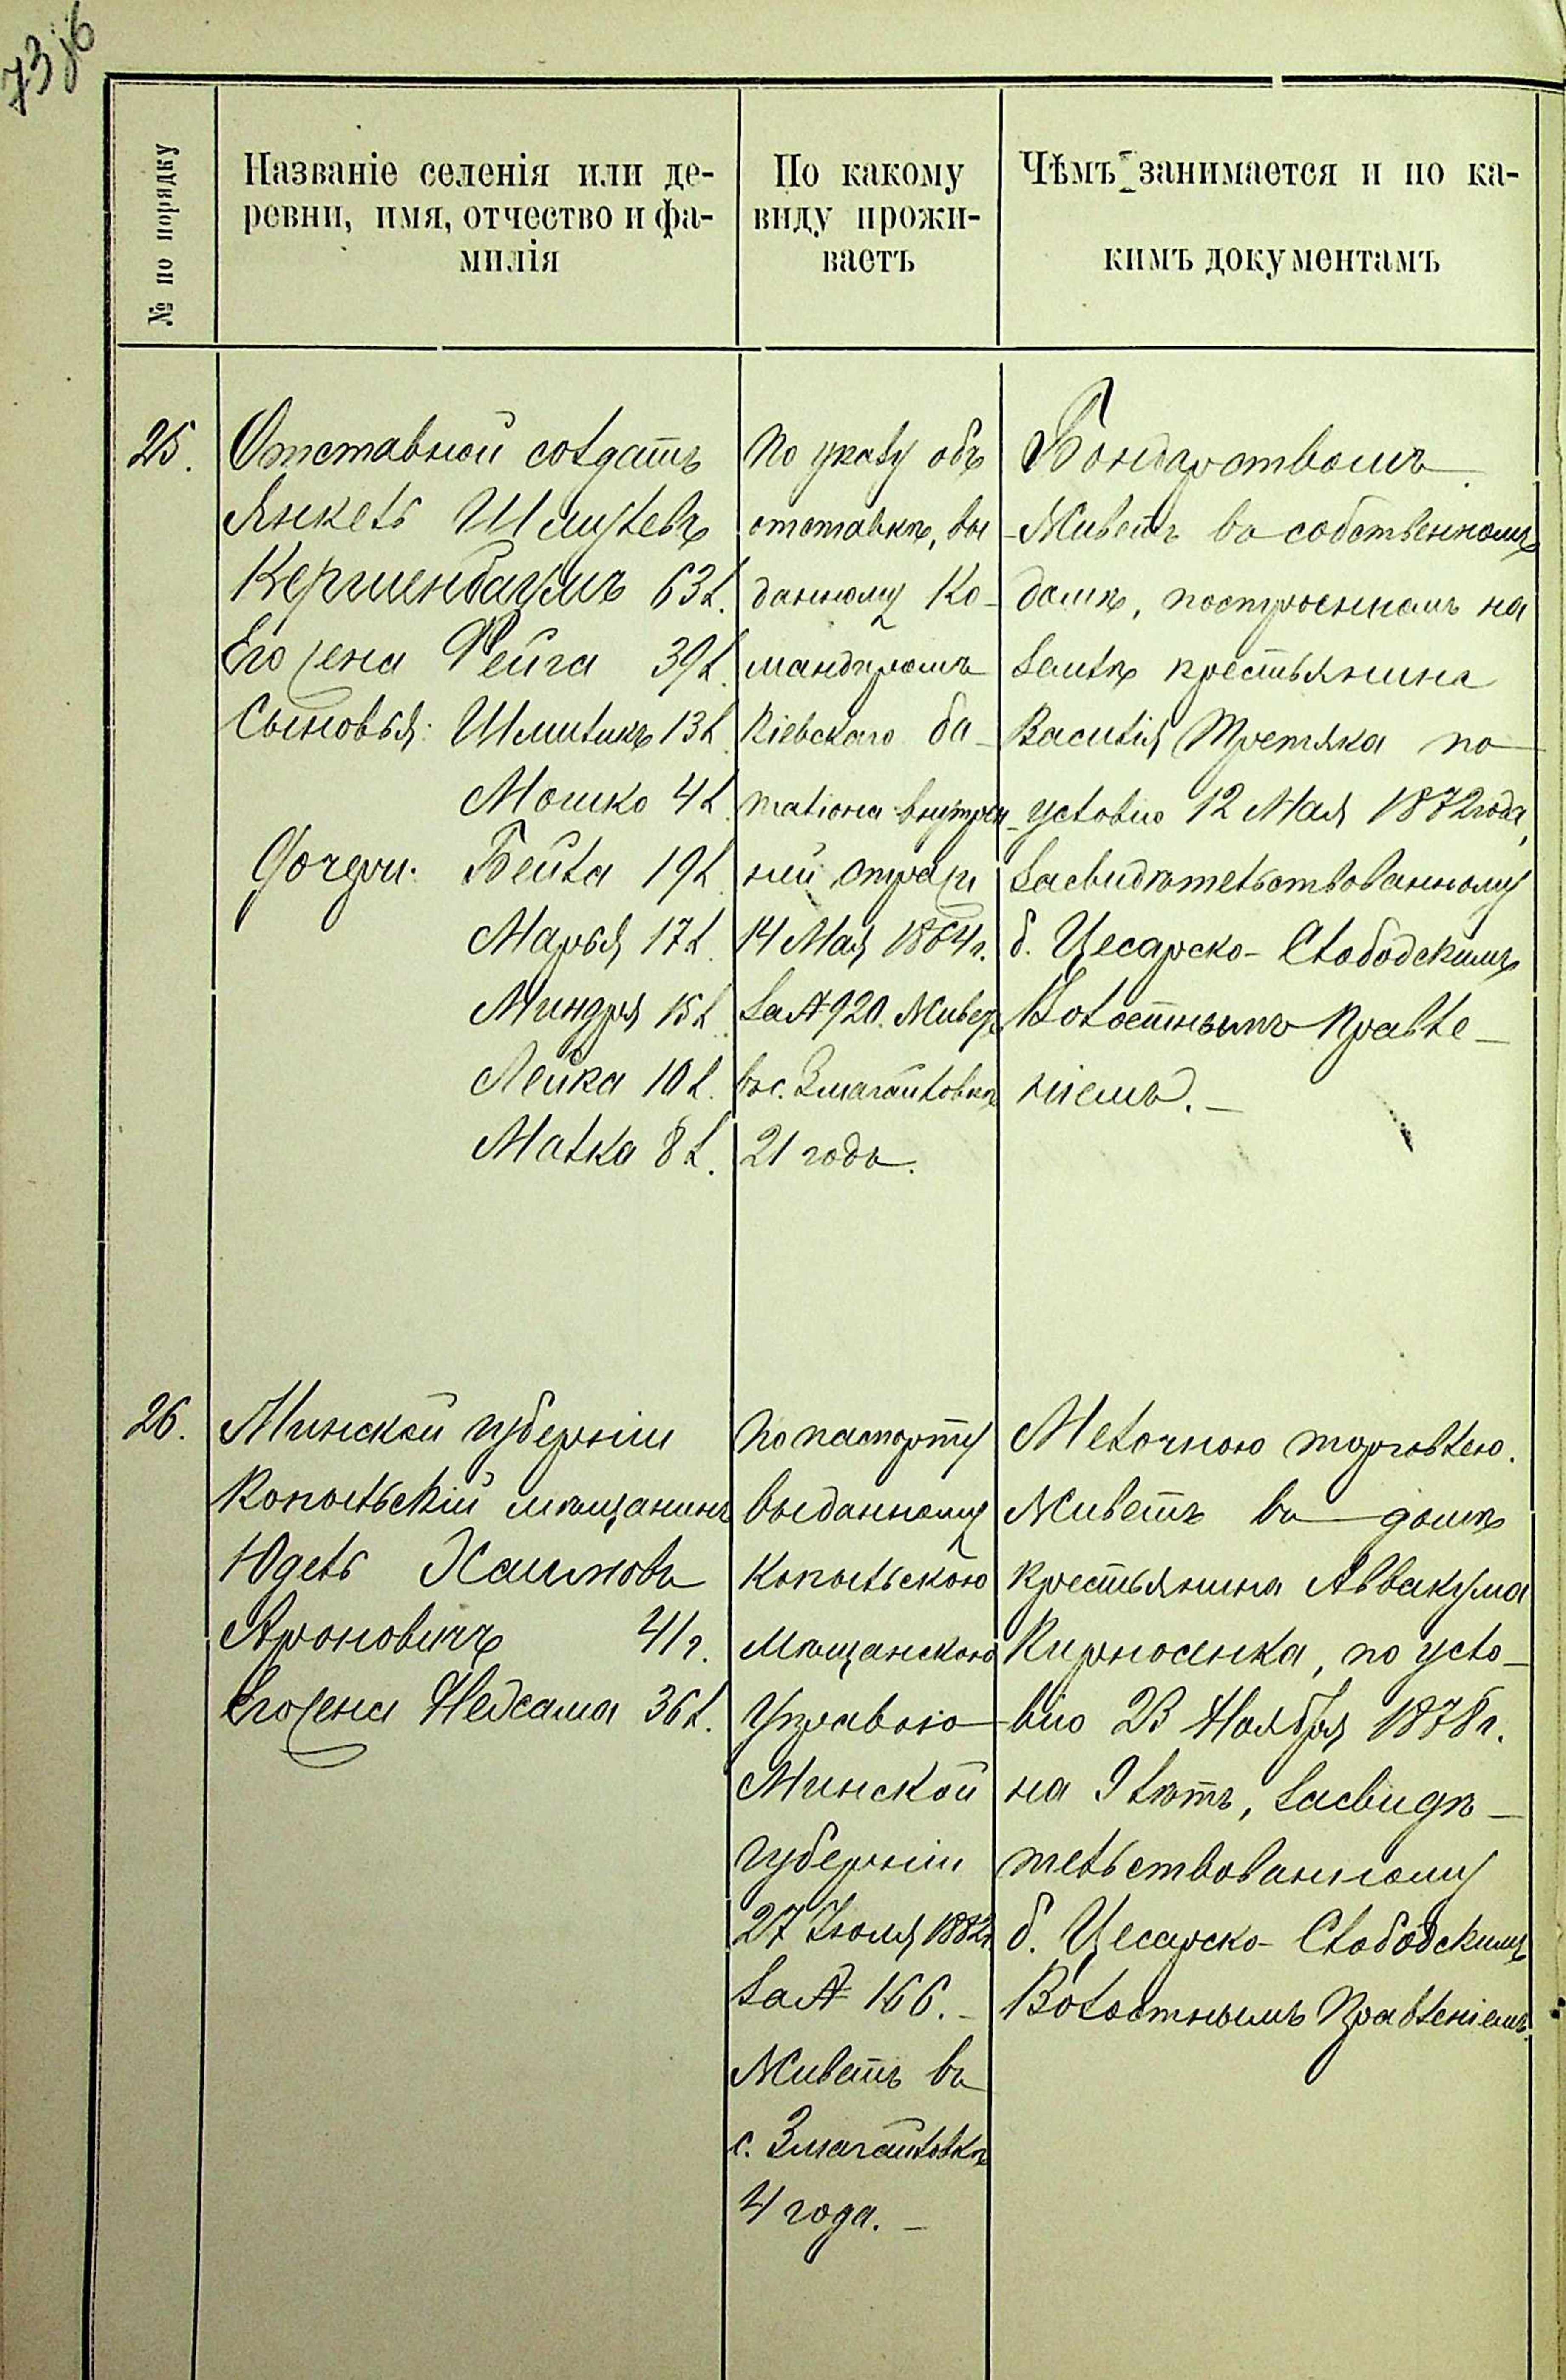 73 об
№ по порядку
Названіе селенія или де-
ревни, имя, отчество и фа-
милія
По какому
виду прожи-
ваетъ
Чѣмъ занимается и по ка-
кимъ документамъ
25.
Отставной солдатъ
Янкель Шмулевъ
Кершенбаумъ 63 л.
Его жена Фейга 39 л.
Сыновья: Шмиликъ 13 л.
Мошко 4 л.
Дочери: Бейла 19 л.
Марья 17 л.
Миндря 15 л.
Лейка 10 л.
Малка 8 л.
По указу объ
отставкѣ, вы-
данному Ко-
мандиромъ
Кіевскаго ба-
таліона внутрен-
ней стражи
14 Мая 1864 г.
за № 920. Живетъ
въ с. Змагайловкѣ
21 годъ.
Бондарствомъ.
Живетъ въ собственномъ
домѣ, построенномъ на
землѣ крестьянина
Василія Третяка по
условію 12 Мая 1872 года,
засвидѣтельствованному
б. Цесарско-Слободскимъ
Волостнымъ Правле-
ніемъ.
26.
Минской губерніи
Копыльскій мѣщанинъ
Юдель Хаимовъ
Ароновичъ 41 г.
Его жена Нехама 36 л.
По паспорту
выданному
Копыльскою
Мѣщанскою
Управою
Минской
губерніи
27 Іюля 1882 г.
за № 166.
Живетъ въ
с. Змагайловкѣ
4 года.
Мелочною торговлею.
Живетъ въ домѣ
крестьянина Аввакума
Кирносенка, по усло-
вію 23 Ноября 1878 г.
на 9 лѣтъ, засвидѣ-
тельствованному
б. Цесарско-Слободскимъ
Волостнымъ Правленіемъ.